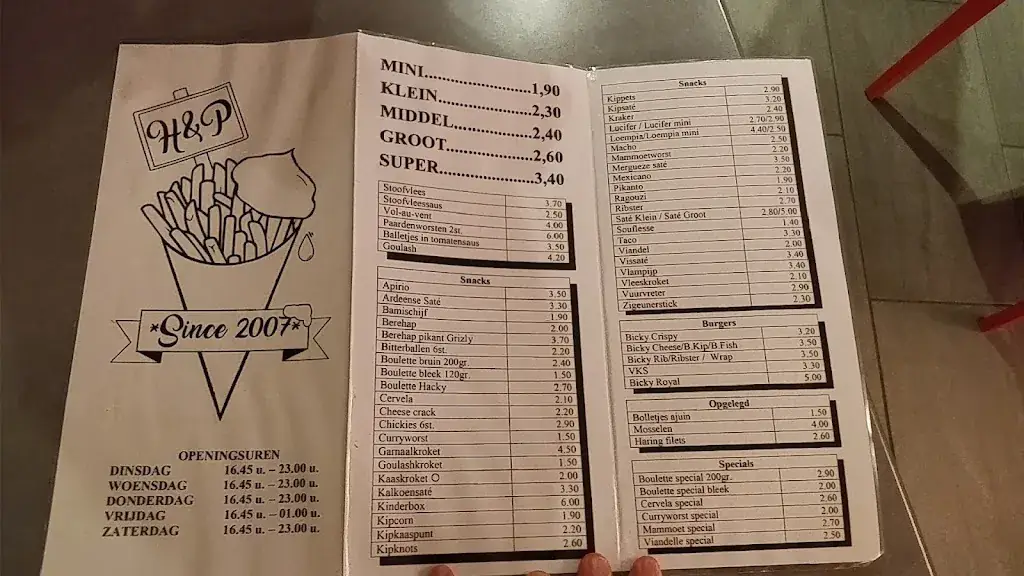 H&P
*Since 2007*
OPENINGSUREN
DINSDAG 16.45 u. – 23.00 u.
WOENSDAG 16.45 u. – 23.00 u.
DONDERDAG 16.45 u. – 23.00 u.
VRIJDAG 16.45 u. – 01.00 u.
ZATERDAG 16.45 u. – 23.00 u.
MINI..........................1,90
KLEIN.......................2,30
MIDDEL....................2,40
GROOT.....................2,60
SUPER.......................3,40
Stoofvlees 3.70
Stoofvleessaus 2.50
Vol-au-vent 4.00
Paardenworsten 2st. 6.00
Balletjes in tomatensaus 3.50
Goulash 4.20
Snacks
Apirio 3.50
Ardeense Saté 3.30
Bamischijf 1.90
Berehap 2.00
Berehap pikant Grizly 3.70
Bitterballen 6st. 2.20
Boulette bruin 200gr. 2.40
Boulette bleek 120gr. 1.50
Boulette Hacky 2.70
Cervela 2.10
Cheese crack 2.20
Chickies 6st. 2.90
Curryworst 1.50
Garnaalkroket 4.50
Goulashkroket 1.50
Kaaskroket O 2.00
Kalkoensaté 3.30
Kinderbox 6.00
Kipcorn 1.90
Kipkaaspunt 2.20
Kipknots 2.60
Snacks
Kippets 2.90
Kipsaté 3.20
Kraker 2.40
Lucifer / Lucifer mini 2.70/2.90
Loempia/Loempia mini 4.40/2.50
Macho 2.50
Mammoetworst 2.20
Mergueze saté 3.50
Mexicano 2.20
Pikanto 1.90
Ragouzi 2.10
Ribster 2.70
Saté Klein / Saté Groot 2.80/5.00
Souflesse 1.40
Taco 3.30
Viandel 2.00
Vissaté 3.40
Vlampijp 3.40
Vleeskroket 2.10
Vuurvreter 2.90
Zigeunerstick 2.30
Burgers
Bicky Crispy 3.20
Bicky Cheese/B.Kip/B Fish 3.50
Bicky Rib/Ribster / Wrap 3.50
VKS 3.30
Bicky Royal 5.00
Opgelegd
Bolletjes ajuin 1.50
Mosselen 4.00
Haring filets 2.60
Specials
Boulette special 200gr. 2.90
Boulette special bleek 2.00
Cervela special 2.60
Curryworst special 2.00
Mammoet special 2.70
Viandelle special 2.50